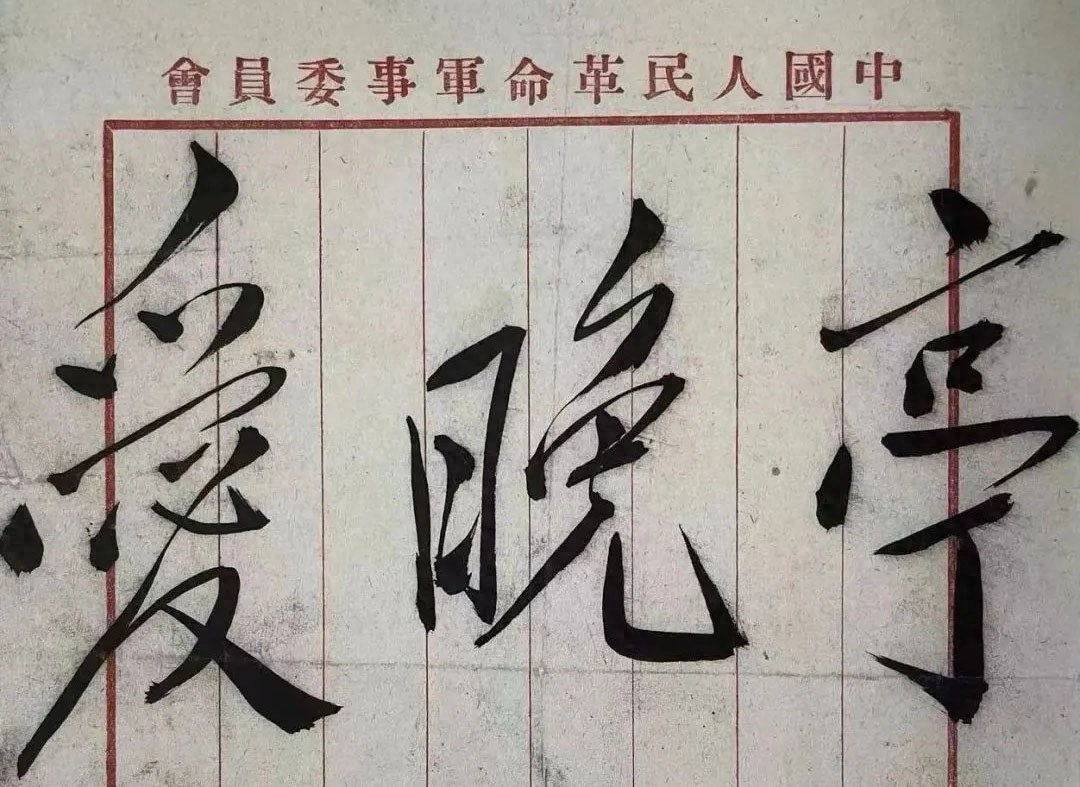 中國人民革命軍事委員會
愛晚亭